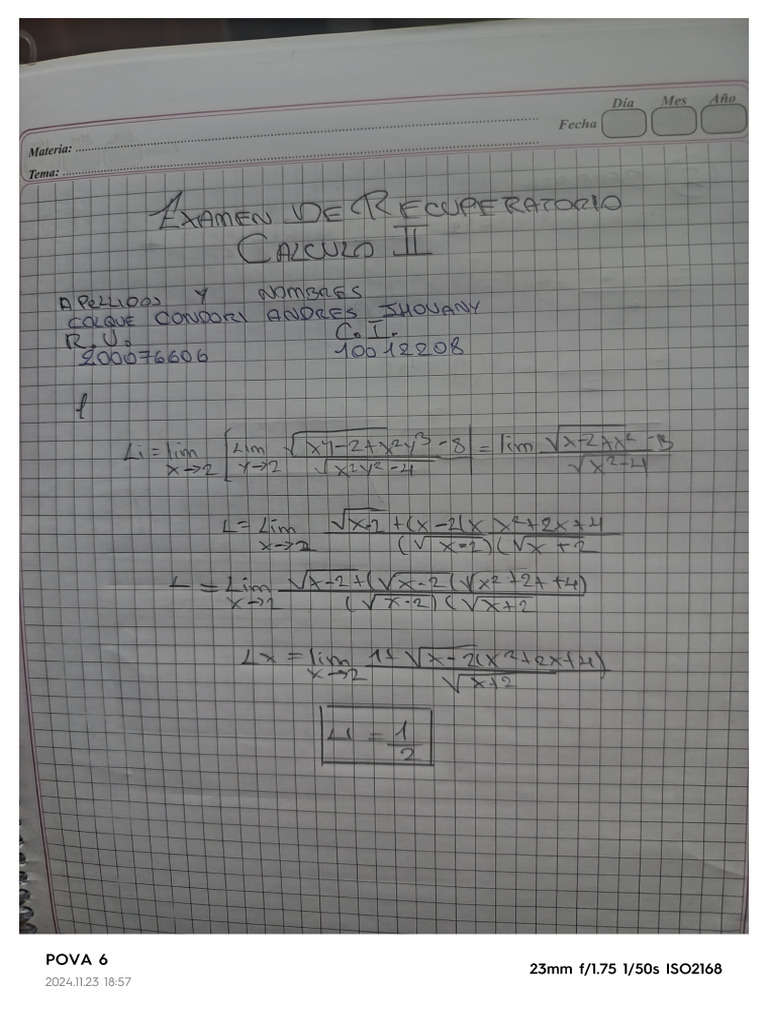 Día Mes Año
Fecha
Materia:
Tema:
EXAMEN DE RECUPERATORIO
CALCULO II
APELLIDOS Y NOMBRES
COLQUE CONDORI ANDRES JHOVANY
R.U. C.I.
200076606 10012208
1
Li = lim x→2 [Lim y→2 √(xy-2+x²y³-8) / √(x²y²-4)] = lim √(x-2+x²-8) / √(x²-4)
L = Lim x→2 √(x-2) + (x-2)(x x²+2x+4 / (√x-2)(√x+2
L = Lim x→2 √(x-2)+(√x-2(√x²+2x+4) / (√x-2)(√x+2
Lx = lim x→2 1+√x-2(x²+2x+4) / √x+2
Li = 1/2
POVA 6
2024.11.23 18:57
23mm f/1.75 1/50s ISO2168